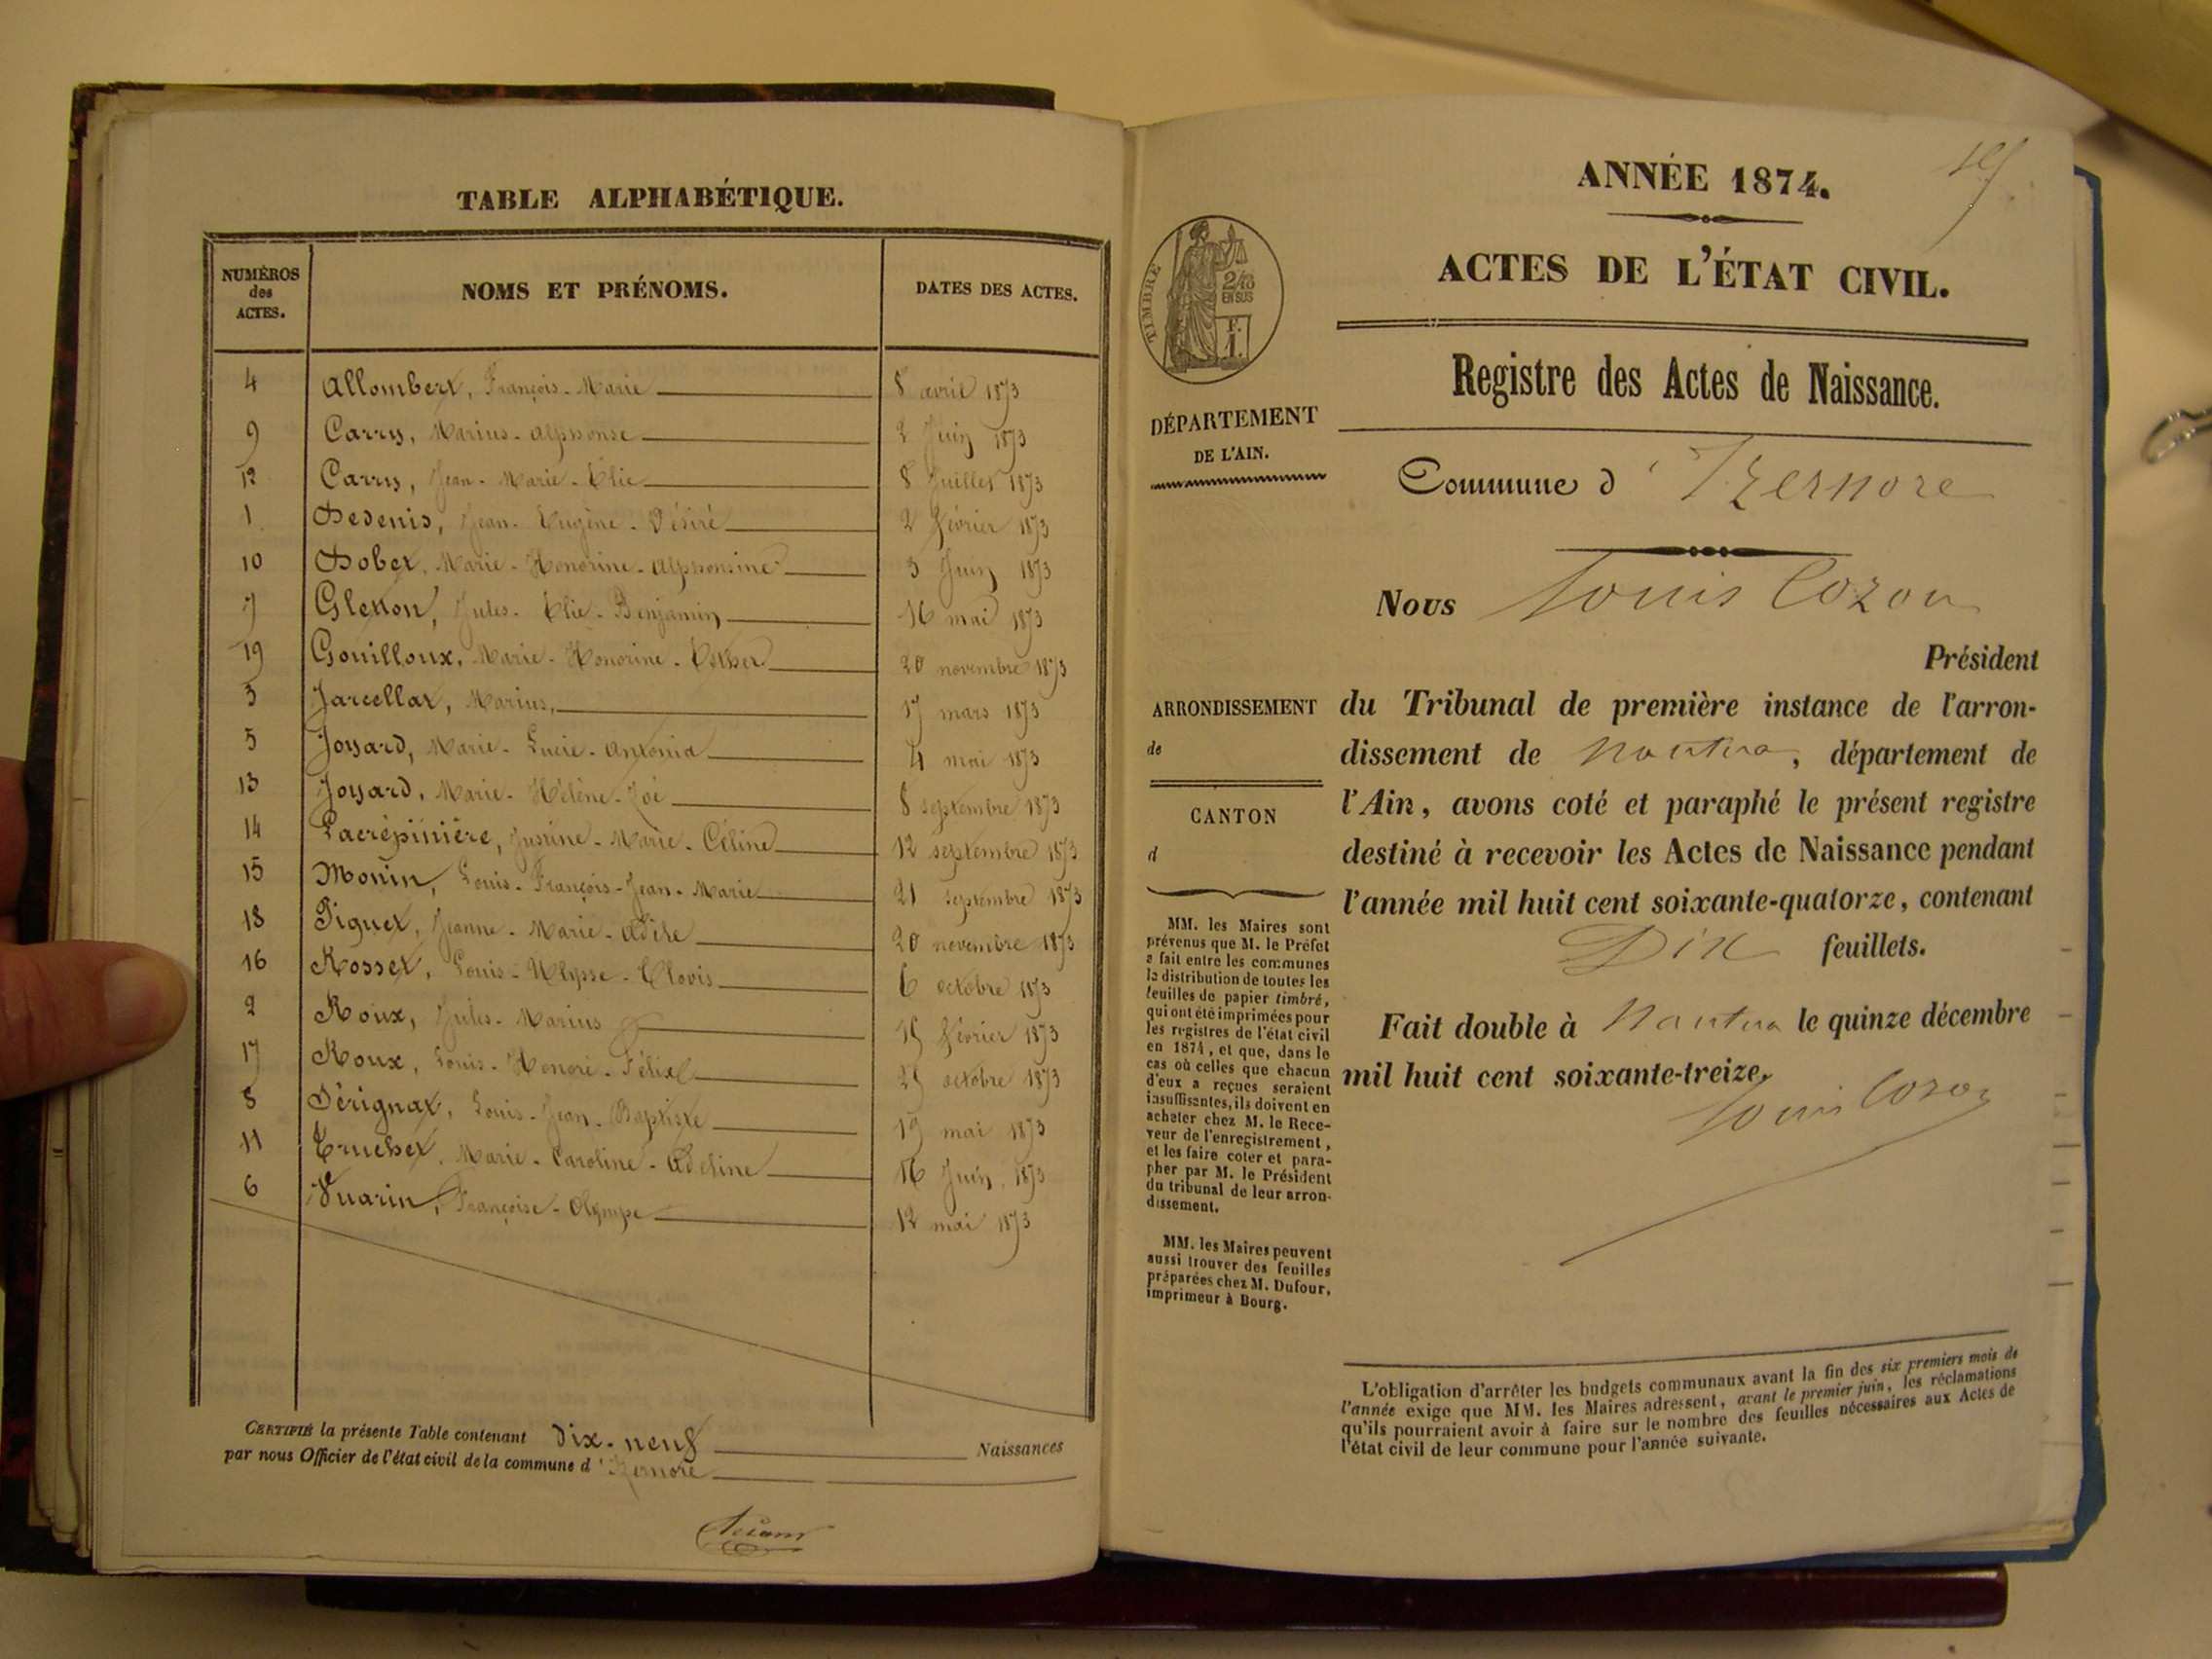 TABLE ALPHABÉTIQUE.
NUMÉROS des ACTES. NOMS ET PRÉNOMS. DATES DES ACTES.
4 Allombert, François-Marie 8 avril 1873
9 Carry, Marius-Alphonse 2 Juin 1873
12 Carry, Jean-Marie-Élie 8 Juillet 1873
1 Desenis, Jean-Eugène-Désiré 2 février 1873
10 Dobet, Marie-Honorine-Alphonsine 3 Juin 1873
7 Gletton, Jules-Élie-Benjamin 16 mai 1873
19 Gouilloux, Marie-Honorine-Esther 20 novembre 1873
3 Jarcellat, Marius, 17 mars 1873
5 Joyard, Marie-Lucie-Antonia 4 mai 1873
13 Joyard, Marie-Hélène-Zoé 8 septembre 1873
14 Lacrépinière, Justine-Marie-Céline 12 septembre 1873
15 Monin, Louis-François-Jean-Marie 21 septembre 1873
18 Piguet, Jeanne-Marie-Adèle 20 novembre 1873
16 Rosset, Louis-Ulysse-Clovis 6 octobre 1873
2 Roux, Jules-Marius février 1873
17 Roux, Louis-Honoré-Félix octobre 1873
8 Sérignat, Louis-Jean-Baptiste 19 mai 1873
11 Truchet, Marie-Caroline-Adeline 16 Juin 1873
6 Vuarin, Françoise-Olympe 12 mai 1873
CERTIFIÉ la présente Table contenant Dix-neuf Naissances
par nous Officier de l'état civil de la commune d'Izernore
ANNÉE 1874.
ACTES DE L'ÉTAT CIVIL.
TIMBRE
2/10
EN SUS
Registre des Actes de Naissance.
DÉPARTEMENT
DE L'AIN.
Commune d'Izernore
Nous Louis Cozon
Président
du Tribunal de première instance de l'arron-
dissement de Nantua, département de
l'Ain, avons coté et paraphé le présent registre
destiné à recevoir les Actes de Naissance pendant
l'année mil huit cent soixante-quatorze, contenant
Dix feuillets.
Fait double à Nantua le quinze décembre
mil huit cent soixante-treize.
Louis Cozon
ARRONDISSEMENT
de
CANTON
d
MM. les Maires sont
prévenus que M. le Préfet
a fait entre les communes
la distribution de toutes les
feuilles de papier timbré,
qui ont été imprimées pour
les registres de l'état civil
en 1874, et que, dans le
cas où celles que chacun
d'eux a reçues seraient
insuffisantes, ils doivent en
acheter chez M. le Rece-
veur de l'enregistrement,
et les faire coter et para-
pher par M. le Président
du tribunal de leur arron-
dissement.
MM. les Maires peuvent
aussi trouver des feuilles
préparées chez M. Dufour,
imprimeur à Bourg.
L'obligation d'arrêter les budgets communaux avant la fin des six premiers mois de
l'année exige que MM. les Maires adressent, avant le premier juin, les réclamations
qu'ils pourraient avoir à faire sur le nombre des feuilles nécessaires aux Actes de
l'état civil de leur commune pour l'année suivante.